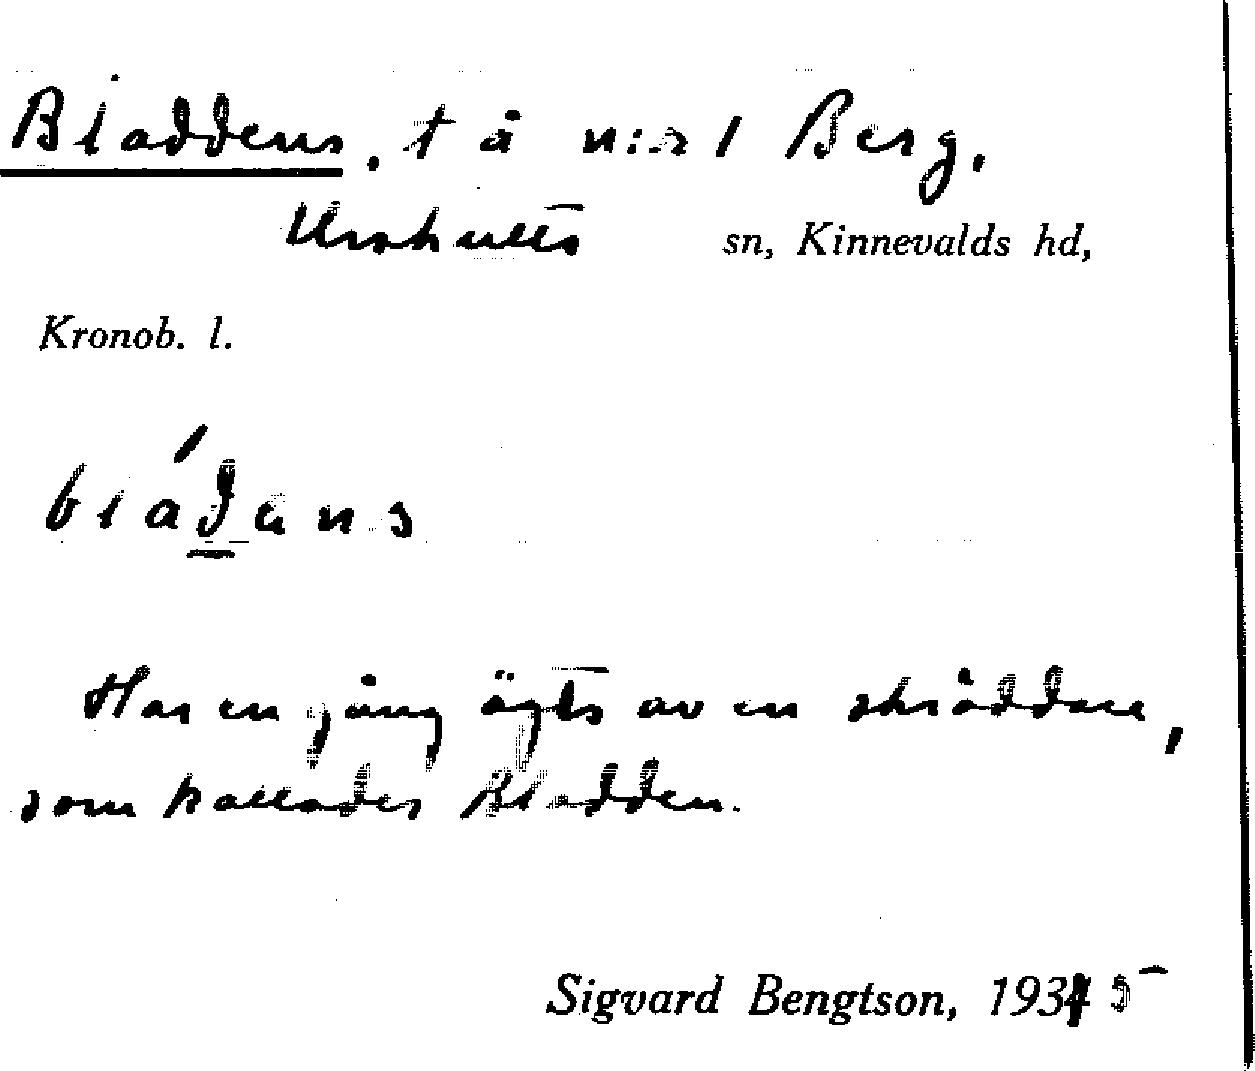 Bladdens, t å n:r 1 Berg.
Urshults sn, Kinnevalds hd,
Kronob. l.
bládans
Har en gång ägts av en skräddare,
som kallades Bladden.
Sigvard Bengtson, 1934 5